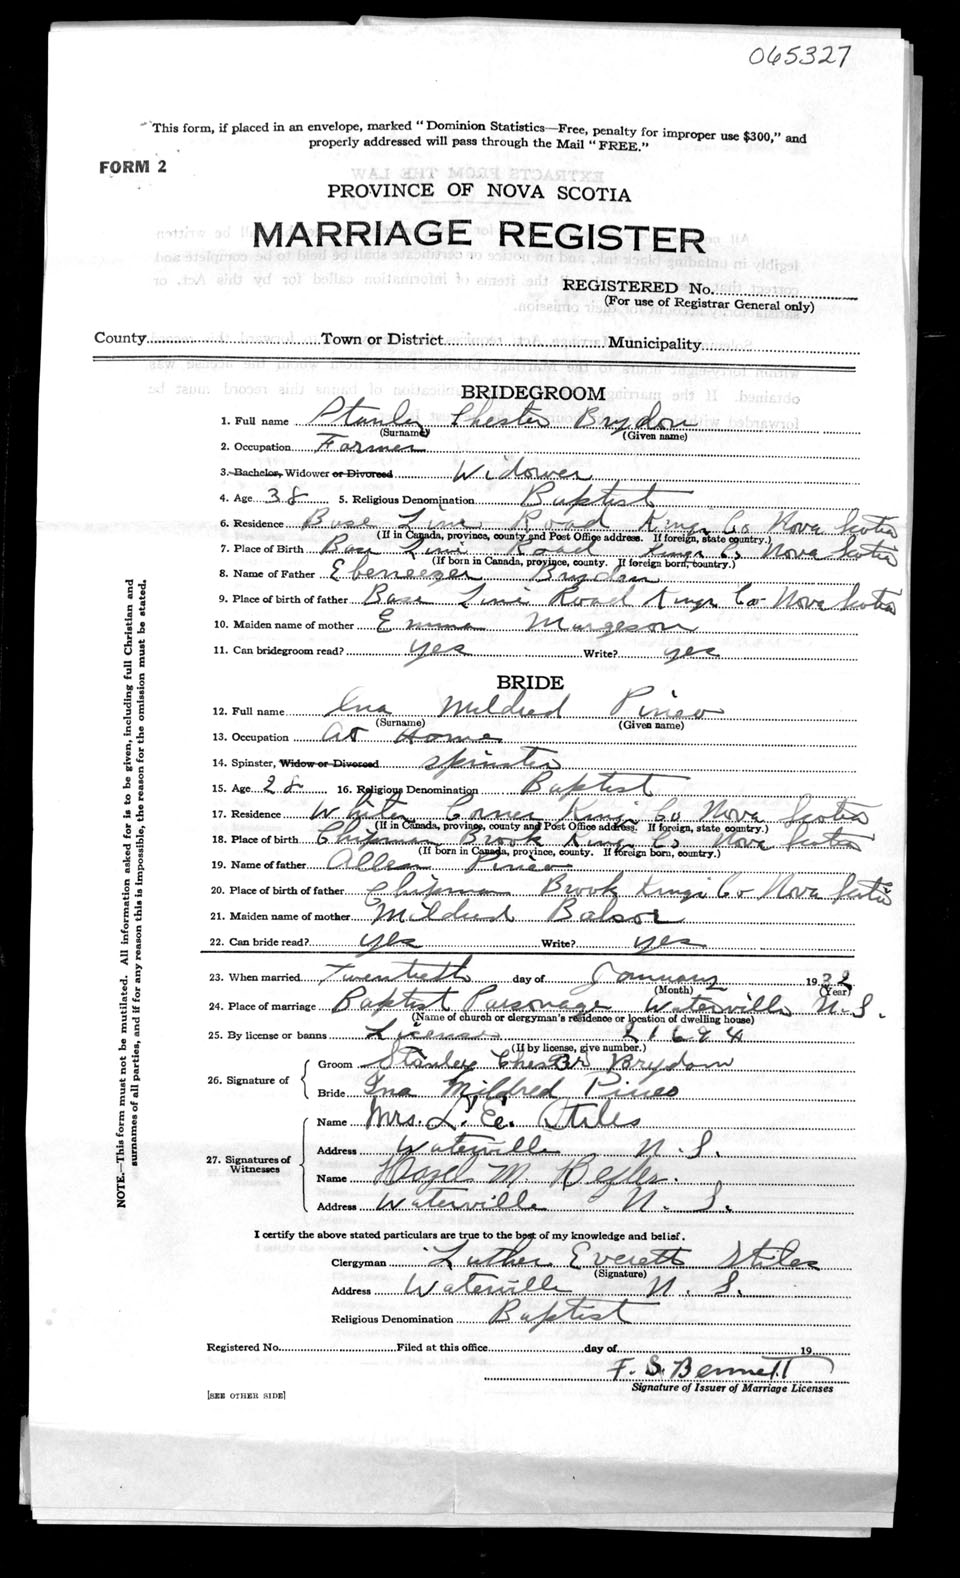 065327
"This form, if placed in an envelope, marked "Dominion Statistics—Free, penalty for improper use $300," and
properly addressed will pass through the Mail "FREE."
FORM 2
PROVINCE OF NOVA SCOTIA
MARRIAGE REGISTER
REGISTERED No.
(For use of Registrar General only)
County Town or District Municipality
BRIDEGROOM
1. Full name Stanley Chester Brydon
(Surname) (Given name)
2. Occupation Farmer
3. Bachelor, Widower or Divorced Widower
4. Age 38 5. Religious Denomination Baptist
6. Residence Base Line Road Kings Co Nova Scotia
(If in Canada, province, county and Post Office address. If foreign, state country.)
7. Place of Birth Base Line Road Kings Co Nova Scotia
(If born in Canada, province, county. If foreign born, country.)
8. Name of Father Ebeneezer Brydon
9. Place of birth of father Base Line Road Kings Co Nova Scotia
10. Maiden name of mother Emma Margeson
11. Can bridegroom read? yes Write? yes
BRIDE
12. Full name Ina Mildred Pineo
(Surname) (Given name)
13. Occupation at Home
14. Spinster, Widow or Divorced spinster
15. Age 28 16. Religious Denomination Baptist
17. Residence Whites Corner Kings Co Nova Scotia
(If in Canada, province, county and Post Office address. If foreign, state country.)
18. Place of birth Chipman Brook Kings Co Nova Scotia
(If born in Canada, province, county. If foreign born, country.)
19. Name of father Allen Pineo
20. Place of birth of father Chipman Brook Kings Co Nova Scotia
21. Maiden name of mother Mildred Balsor
22. Can bride read? yes Write? yes
23. When married Twentieth day of January 1932
(Month) (Year)
24. Place of marriage Baptist Parsonage Waterville N.S.
(Name of church or clergyman's residence or location of dwelling house)
25. By license or banns License 21694
(If by license, give number.)
26. Signature of
Groom Stanley Chester Brydon
Bride Ina Mildred Pineo
27. Signatures of Witnesses
Name Mrs. L. E. Stiles
Address Waterville N. S.
Name Hazel M.
Address Waterville N. S.
I certify the above stated particulars are true to the best of my knowledge and belief.
Clergyman Luther Everett Stiles
(Signature)
Address Waterville N. S.
Religious Denomination Baptist
Registered No. Filed at this office day of 19
F. S. Bennett
Signature of Issuer of Marriage Licenses
[SEE OTHER SIDE]
NOTE.—This form must not be mutilated. All information asked for is to be given, including full Christian and
surnames of all parties, and if for any reason this is impossible, the reason for the omission must be stated.